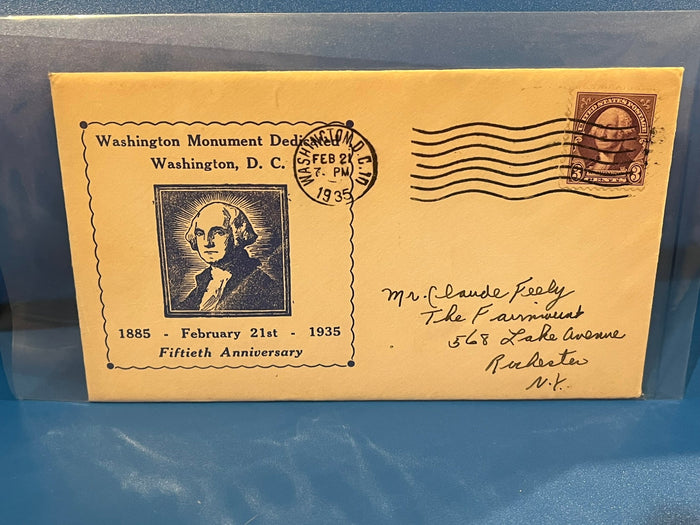 Washington Monument Dedicated
Washington, D. C.
1885 - February 21st - 1935
Fiftieth Anniversary
WASHINGTON, D.C. 10
FEB 21
7 - PM
1935
UNITED STATES POSTAGE
3 3
Mr. Claude Feely
The Fairmount
568 Lake Avenue
Rochester
N.Y.